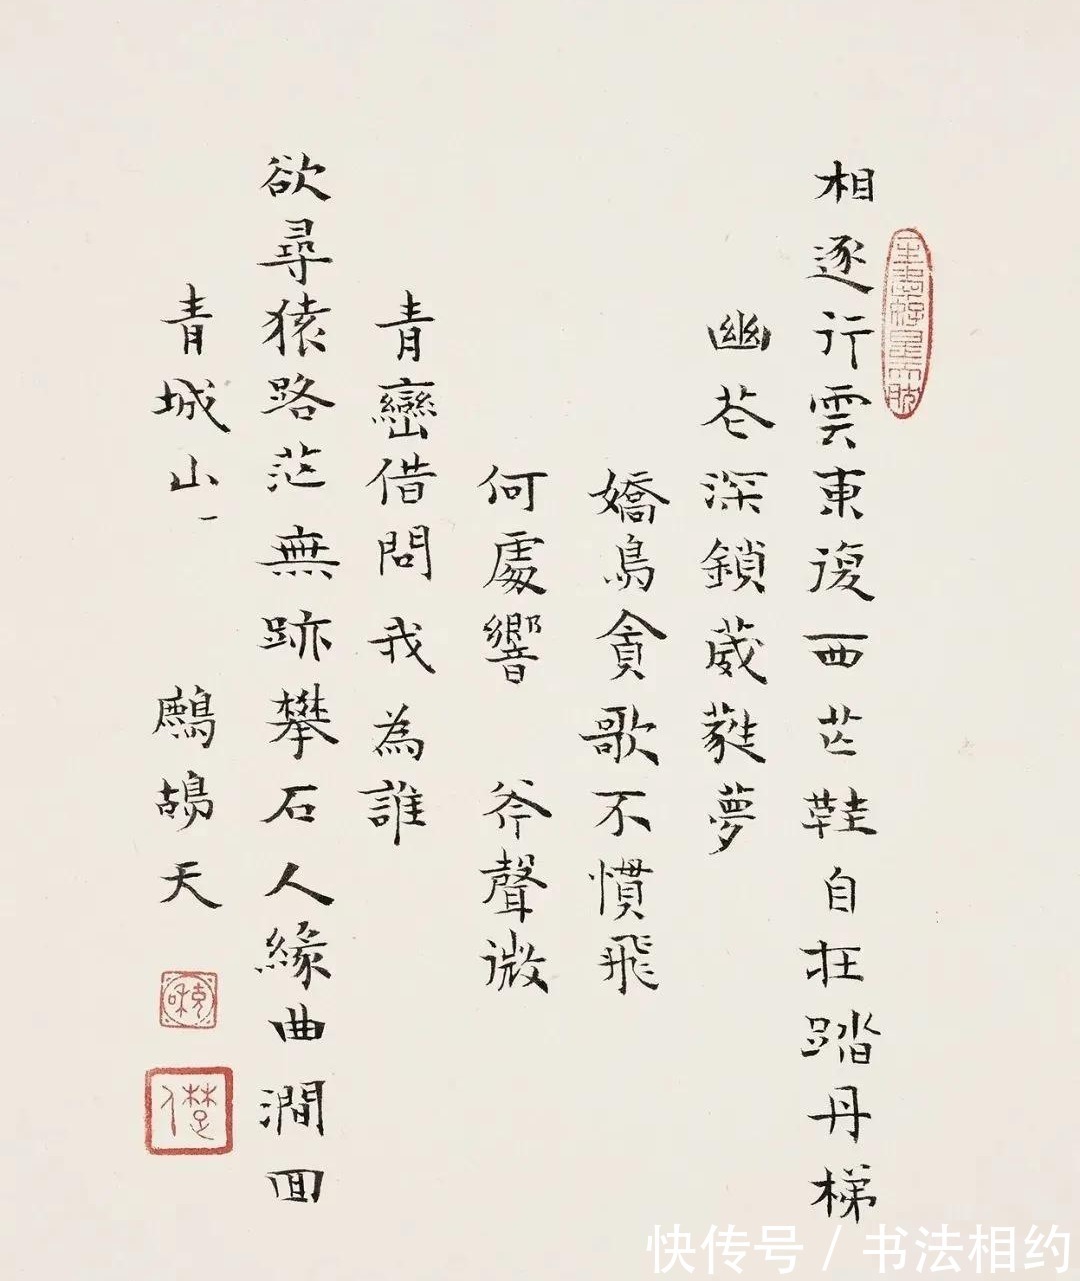 相逐行雲東復西芒鞋自在踏丹梯
幽苍深鎖葳蕤夢
嬌鳥貪歌不慣飛
何處響 斧聲微
青巒借問我為誰
欲尋猿路茫無跡攀石人緣曲澗回
青城山一 鷓鴣天
快传号 / 书法相约